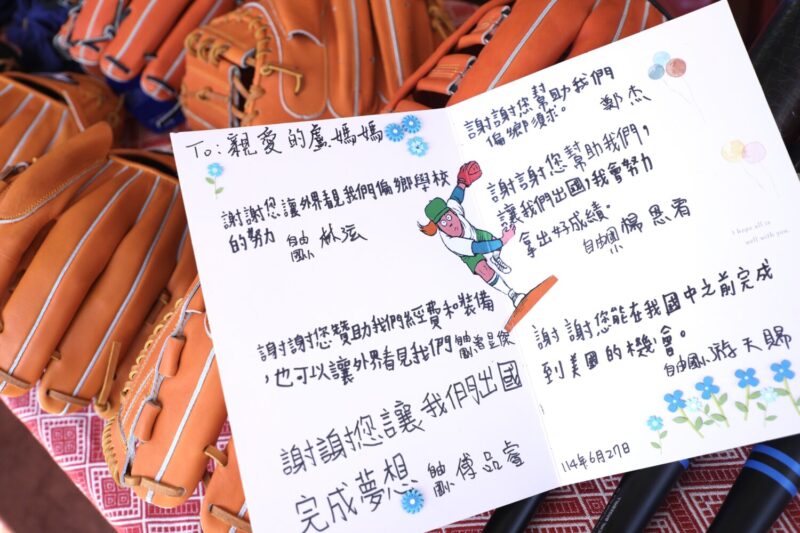 To: 親愛的盧媽媽
謝謝您讓外界看見我們偏鄉學校
的努力 自由國小 林泫
謝謝您贊助我們經費和裝備
，也可以讓外界看見我們 自由國小
謝謝您讓我們出國
完成夢想 自由國小 傅品睿
謝謝您幫助我們
偏鄉須求。 鄭杰
謝謝您幫助我們，
讓我們出國，我會努力
拿出好成績。 自由國小 楊恩宥
I hope all is
well with you.
謝謝您能在我國中之前完成
到美國的機會。
自由國小 游天賜
114年6月27日